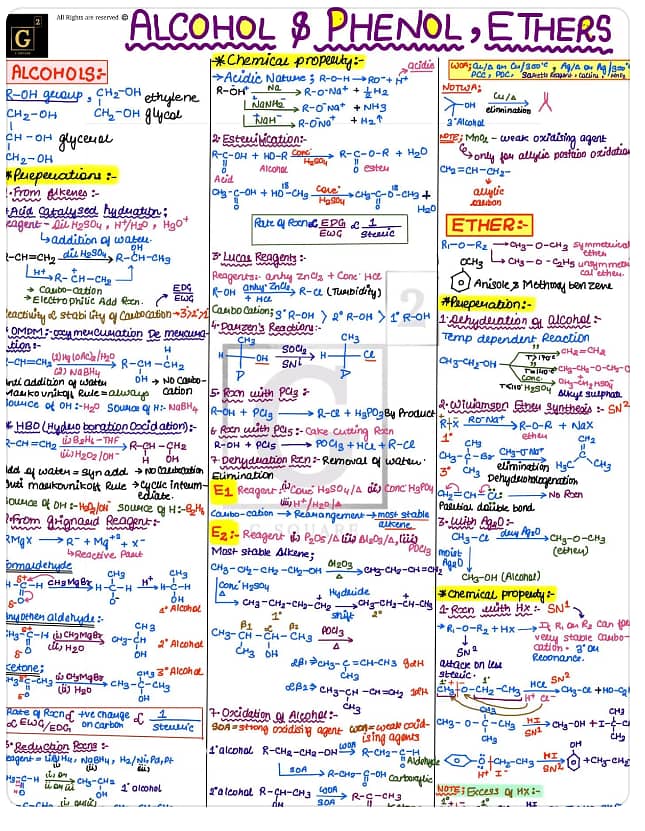 G 2
All Rights are reserved ©
ALCOHOL & PHENOL, ETHERS
ALCOHOLS:-
R-OH group, CH2-OH ethylene
CH2-OH CH2-OH glycol
CH-OH glycerol
CH2-OH
*Preperations:-
1. From Alkenes:-
Acid Catalysed hydration;
eagent - dil H2SO4, H+/H2O, H3O+
↳ addition of water.
R-CH=CH2 dil H2SO4 → R-CH-CH3
OH
H+ → R-CH-CH3
→ Carbo-cation
→ Electrophilic Add rxn.
EDG
EWG
eactivity & stability of Carbocation → 3°>2°>1°
OMDM:- oxymercuration De mercura-
tion:-
R-CH=CH2 (1) Hg(OAc)2/H2O → R-CH-CH2
(2) NaBH4
H
OH
→ No Carbo-
cation
nti addition of water
Markovnikoff Rule = always
Source of OH:- H2O Source of H:- NaBH4
* HBO (Hydroboration Oxidation):-
R-CH=CH2 (i) B2H6-THF → R-CH-CH2
(ii) H2O2/OH-
H OH
dd of water = syn add → No Carbocation
nti markovnikoff Rule → cyclic interm-
ediate.
Source of OH:- H2O2/OH- Source of H:- B2H6
2. From grignard Reagent:-
RMgX → R- + Mg+2 + X-
↳ Reactive Part
formaldehyde
H-C-H CH3MgBr → H-C-H H+ → H-C-H
CH3
OH
1° Alcohol
ny other aldehyde:-
CH3-C-H (i) CH3MgBr → CH3-CH
(ii) H2O
CH3
OH
2° Alcohol
ketone;
CH3-C-CH3 (i) CH3MgBr → CH3-C-CH3
(ii) H2O
CH3
OH
3° Alcohol
Rate of Rxn ∝ +ve charge on carbon ∝ 1/Steric
∝ EWG/EDG
3. Reduction Rxns:-
eagent = LiAlH4, NaBH4, H2/Ni, Pd, Pt
CH3-C-H → CH3-CH2 1° alcohol
OH
* Chemical property:-
→ Acidic Nature; R-O-H → RO- + H+ acidic
R-OH Na → R-O-Na+ + 1/2 H2
NaNH2 → R-O-Na+ + NH3
NaH → R-O-Na+ + H2↑
2. Esterification:-
R-C-OH + HO-R Conc. H2SO4 → R-C-O-R + H2O
O
Acid Alcohol ester
CH3-C-OH + HO18-CH3 Conc. H2SO4 → CH3-C-O18-CH3 + H2O
Rate of Rxn ∝ EDG/EWG ∝ 1/steric
3. Lucas Reagents:-
Reagents:- anhy ZnCl2 + Conc HCl
R-OH anhy ZnCl2 + HCl → R-Cl (Turbidity)
Carbocations; 3° R-OH > 2° R-OH > 1° R-OH
4. Darzen's Reaction:-
CH3 CH3
H OH SOCl2 SNi → H Cl
D D
5. Rxn with PCl3 :-
R-OH + PCl3 → R-Cl + H3PO3 By Product
6. Rxn with PCl5 :- Cake Cutting Rxn
R-OH + PCl5 → POCl3 + HCl + R-Cl
7. Dehydration Rxn:- Removal of water.
Elimination
E1 Reagent; (i) Conc H2SO4/Δ (ii) Conc H3PO4
(iii) H+/H2O/Δ
Carbo-cation → Rearrangement → most stable
alkene
G SQUARE
E2:- Reagent (i) P2O5/Δ (ii) Al2O3/Δ, (iii)
POCl3
Most stable Alkene;
CH3-CH2-CH2-CH2-OH Al2O3 Δ → CH3-CH2-CH=CH2
Conc H2SO4
CH3-CH2-CH2-CH2 Hydride shift → CH3-CH2-CH-CH3
1° 2°
β1 α β2
CH3-CH-CH-CH3 POCl3 Δ →
CH3 OH
αβ1 ⇒ CH3-C=CH-CH3
CH3
αβ2 ⇒ CH3-CH-CH=CH2
CH3
7. Oxidation of Alcohol:-
SOA = strong oxidising agent WOA = weak oxid-
ising agents
1° alcohol R-CH2-CH2-OH WOA → R-CH2-C-H
O
Aldehyde
SOA → R-CH2-C-OH Carboxylic
2° alcohol R-CH-CH3 WOA SOA → R-C-CH3
OH O
WOA; Cu/Δ or Cu/300°C, Ag/Δ or Ag/300°C
PCC, PDC, Sarrets Reagent, Collins, MnO2
NOTWA;
OH Cu/Δ elimination →
3° Alcohol
NOTE; MnO2 - weak oxidising agent
↳ only for allylic position oxidation
CH2=CH-CH2-
↓
allylic
carbon
ETHER:-
R1-O-R2 → CH3-O-CH3 symmetrical
ether
→ CH3-O-C2H5 unsymmetri
cal ether.
OCH3
Anisole & Methoxy benzene
*Preperation:-
1. Dehydration of alcohol:-
Temp dependent Reaction
CH3-CH2-OH → CH2=CH2
T=140°C → CH3-CH2-O-CH2-C
Conc. H2SO4
T<110° → CH3-CH2HSO4
Alkyl sulphate
2. Williamson Ether synthesis:- SN2
R-X RO-Na+ → R-O-R + NaX
1° ether
CH3 CH2
CH3-C-Br CH3-O-Na+ → H3C-C-CH3
3° CH3 elimination
Dehydrohalogenation
CH2=CH-Cl → No Rxn
Partial double bond
3. With Ag2O:-
CH3-Cl dry Ag2O → CH3-O-CH3
(ether)
moist
Ag2O
CH3-OH (Alcohol)
*Chemical property:-
1. Rxn with HX:- SN1
R1-O-R2 + HX → If R1 or R2 can form
very stable Carbo-
cation - 3° or
Resonance.
SN2
attack on less
steric.
CH3-O-CH2-CH3 HCl SN2 → CH3-Cl + HO-C2H
H+ Cl-
CH3-O-C-CH3 HI SN2 → CH3-OH + I-C-C
CH3 CH3
O-CH2-CH3 HI SN2 → OH + CH3-CH2
H+ I-
NOTE; Excess of HX:-